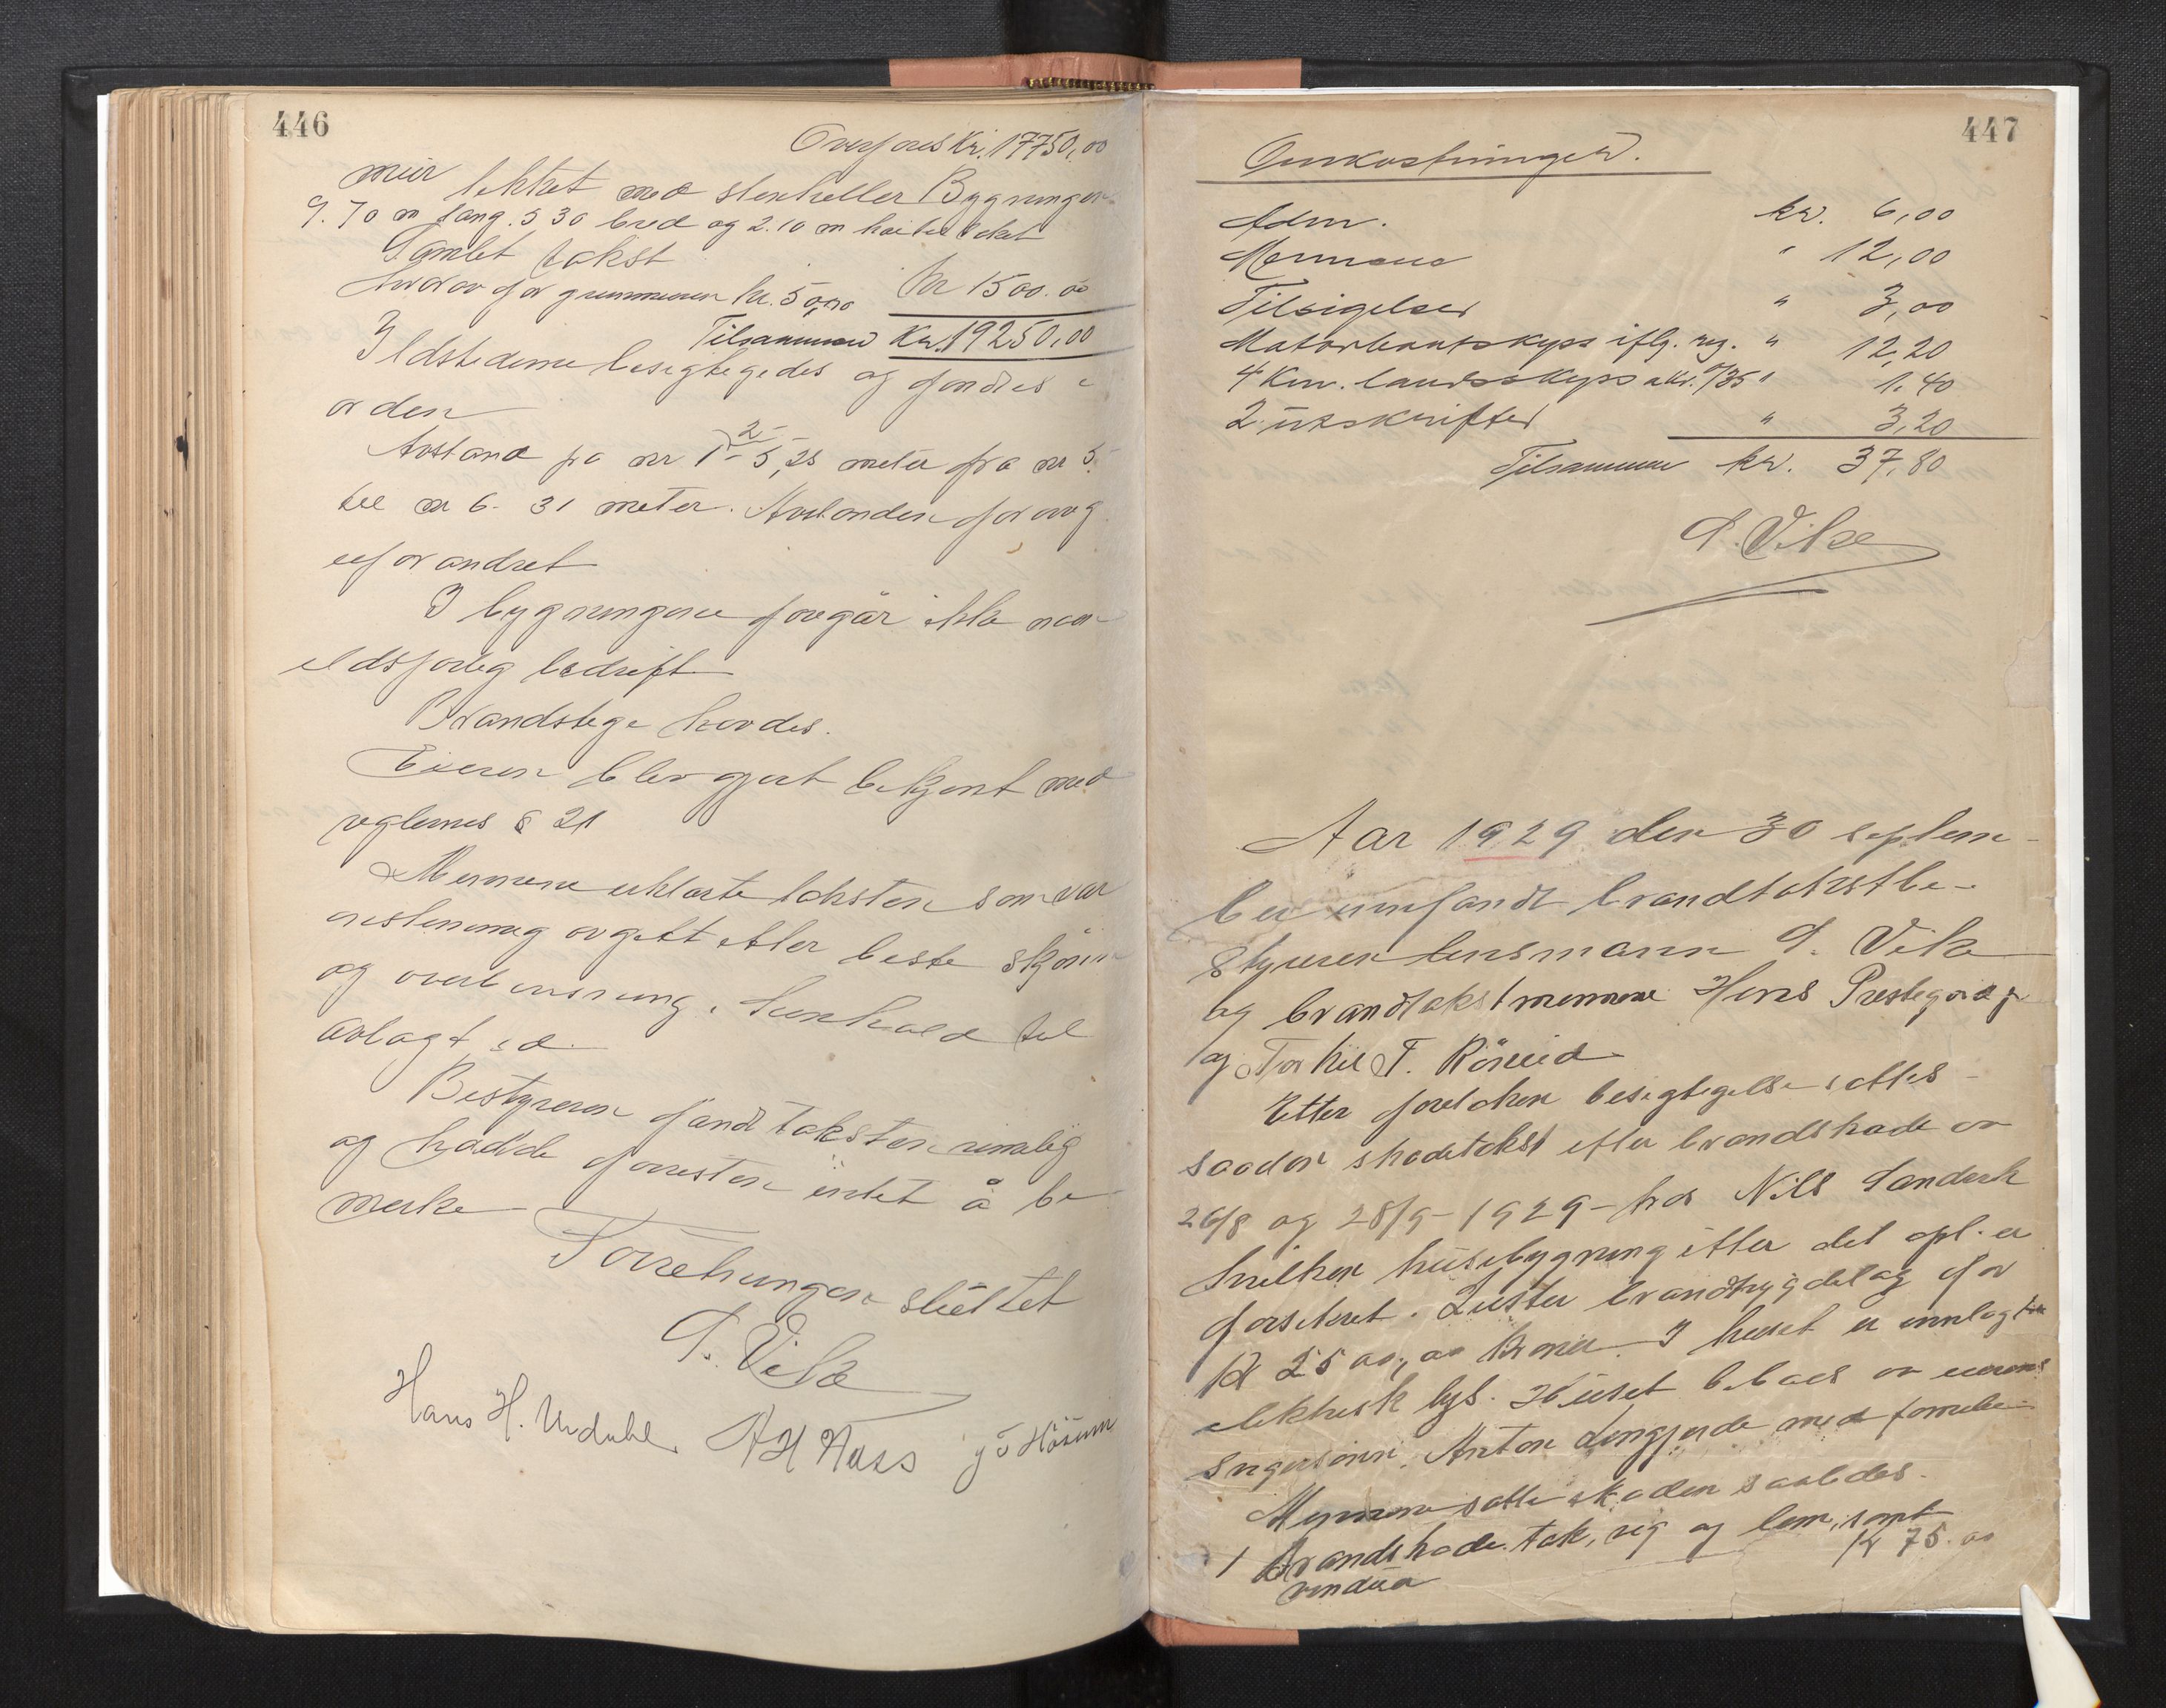 446
Overføres Kr. 17750,00
mur tekket med stenheller Bygningen
9.70 m lang. 5 30 bred og 2.10 m høi til taket
Samlet takst
hvorav for grunmuren kr. 50,00 kr 1500.00
Tilsammen Kr. 19250,00
Ildstederne besigtegedes og fandtes i
orden
Avstand fra nr 1 - 2 5,25 meter fra nr 5
til nr 6 - 31 meter. Avstanden forøvrig
uforandret
I bygningene foregår ikke noen
ildsfarlig bedrift
Brandstege havdes.
Eieren blev gjort bekjent med
reglernes § 21
Mennene erklærte taksten som var
enstemmig avgitt etter beste skjønn
og overbevisning, i henhold til
avlagt ed.
Bestyreren fandt taksten rimelig
og hadde forresten intet å be-
merke
Forretningen sluttet
S. Vike
Hans H. Undahl A H Nass
447
Omkostninger.
Adm. kr. 6,00
Mennene " 12,00
Tilsigelser " 3,00
Motorbaatskyss iflg. reg. " 12,20
4 Km. landsskyss a kr. 0/35 " 1,40
2 utskrifter " 3,20
Tilsammen kr. 37,80
S. Vike
Aar 1929 den 30 septem-
ber innfandt brandtakstbe-
styreren lensmann S. Vike
og brandtakstmennene Hans Prestegård
og Torkil T. Röneid
Etter foretaken besigtigelse sattes
saadan skadetakst efter brandskade av
26/8 og 28/9 - 1929 - hos Nils Sandvik
hvilken husebygning etter det opl. er
forsikret i Luster brandtrygdelag for
kr 2500,00 kroner I huset er innlagt
elektrisk lys. Huset beboes av eierens
svigersønn Anton Lingjerde med familie
Mennene satte skaden saaledes.
1 Brandskade tak, reg og lem, samt
vindua kr 75.00